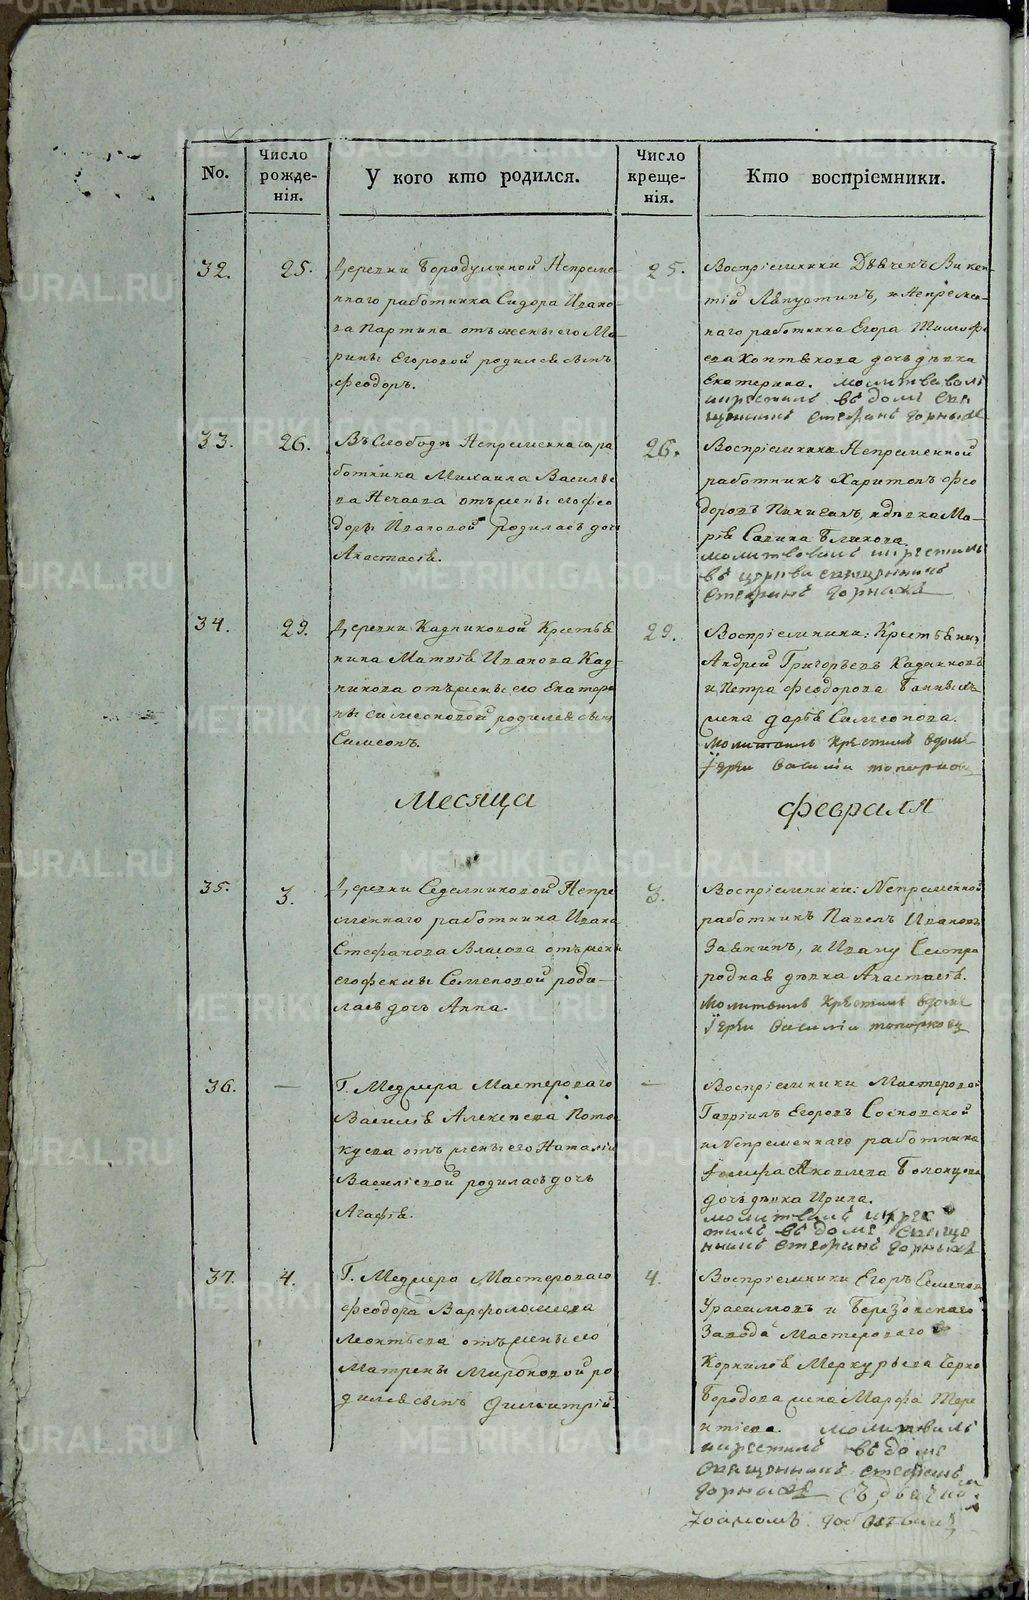 No.
Число рожде-нія.
У кого кто родился.
Число креще-нія.
Кто воспріемники.
32.
25.
Деревни Бородулиной Непреме-
ннаго работника Сидора Ивано-
ва Партина отъ жены его Ма-
рины Егоровой родился сынъ
Феодоръ.
25.
Воспріемники
тій и Непремен-
наго работника Егора Тимофе
ева дочь девка
Екатерина. молитвовалъ
икрестилъ въ доме Свя
щенникъ Стефанъ Горныхъ
33.
26.
Въ Слободе Непременнаго ра
ботника Михаила Василье
ва Нечаева отъ жены его Фео
доры Ивановой родилась дочь
Анастасія.
26.
Воспріемники Непременной
работникъ Харитонъ Фео
доровъ и девка Ма-
рія Савина
молитвовалъ икрестилъ
въ церкви священникъ
Стефанъ Горныхъ
34.
29.
Деревни Кадниковой Крестья
нина Матвея Иванова Кад-
никова отъ жены его Екатери
ны Симеоновой родился сынъ
Симеонъ.
29.
Воспріемники: Крестьяни
Андрей Григорьевъ Кадниковъ
и Петра Феодорова
жена Дарья Симеонова.
Молитвилъ крестилъ вдоме
Іерей Василій Топорковъ
Месяца
Февраля
35.
3.
Деревни Седелниковой Непре
меннаго работника Ивана
Стефанова Власова отъ жены
его Феклы Семеновой роди-
лась дочь Анна.
3.
Воспріемники: Непременной
работникъ Павелъ Ивановъ
Заякинъ, и Ивану Сестра
родная девка Анастасія.
Молитвилъ крестилъ вдоме
Іерей Василій Топорковъ
36.
—
Г. Меджера Мастероваго
Василья Алексеева Пото
куева отъ жены его Наталіи
Василіевой родилась дочь
Агафія.
—
Воспріемники Мастеровой
Гавріилъ Егоровъ Сосновской
и Непременнаго работника
Яковлева
дочь девка Ирина.
молитвилъ икрес
тилъ въ доме Свяще
нникъ Стефанъ Горныхъ
37.
4.
Г. Меджера Мастероваго
Феодора Варфоломеева
Леонтьева отъ жены его
Матрены Мироновой ро
дился сынъ Димитрій.
4.
Воспріемники Егоръ Семенов
и Березовскаго
Завода Мастероваго
Корнилья Меркурьева Черно
бородова жена Марфа Тере
нтіева. молитвилъ
икрестилъ въ доме
Священникъ Стефанъ
Горныхъ
METRIKI.GASO-URAL.RU